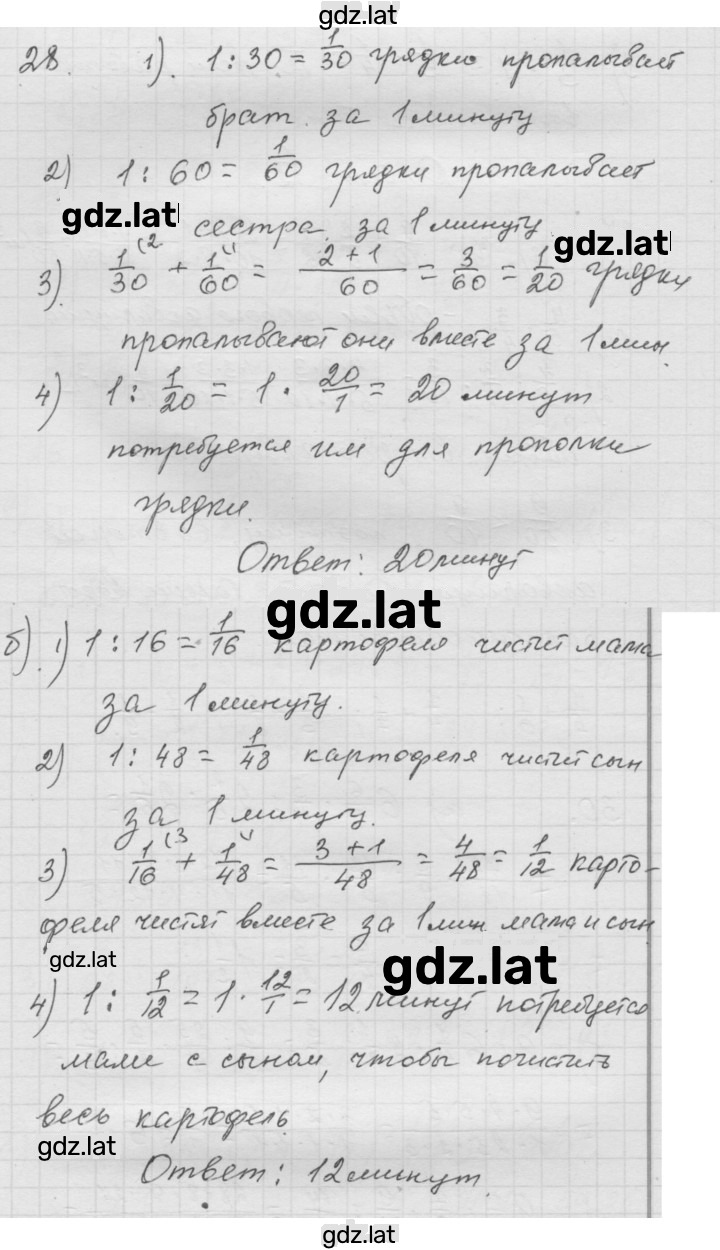 gdz.lat
28. 1). 1 : 30 = 1/30 грядки пропалывает
брат за 1 минуту
2) 1 : 60 = 1/60 грядки пропалывает
gdz.lat
сестра за 1 минуту
gdz.lat
3). 1/30 (2 + 1/60 (1 = 2+1/60 = 3/60 = 1/20 грядки
пропалывают они вместе за 1 мин.
4) 1 : 1/20 = 1 · 20/1 = 20 минут
потребуется им для прополки
грядки.
Ответ: 20 минут
gdz.lat
б). 1) 1 : 16 = 1/16 картофеля чистит мама
за 1 минуту.
2) 1 : 48 = 1/48 картофеля чистит сын
за 1 минуту.
3) 1/16 (3 + 1/48 (1 = 3+1/48 = 4/48 = 1/12 карто-
феля чистят вместе за 1 мин мама и сын
gdz.lat
gdz.lat
4) 1 : 1/12 = 1 · 12/1 = 12 минут потребуется
маме с сыном, чтобы почистить
весь картофель.
gdz.lat
Ответ: 12 минут.
gdz.lat